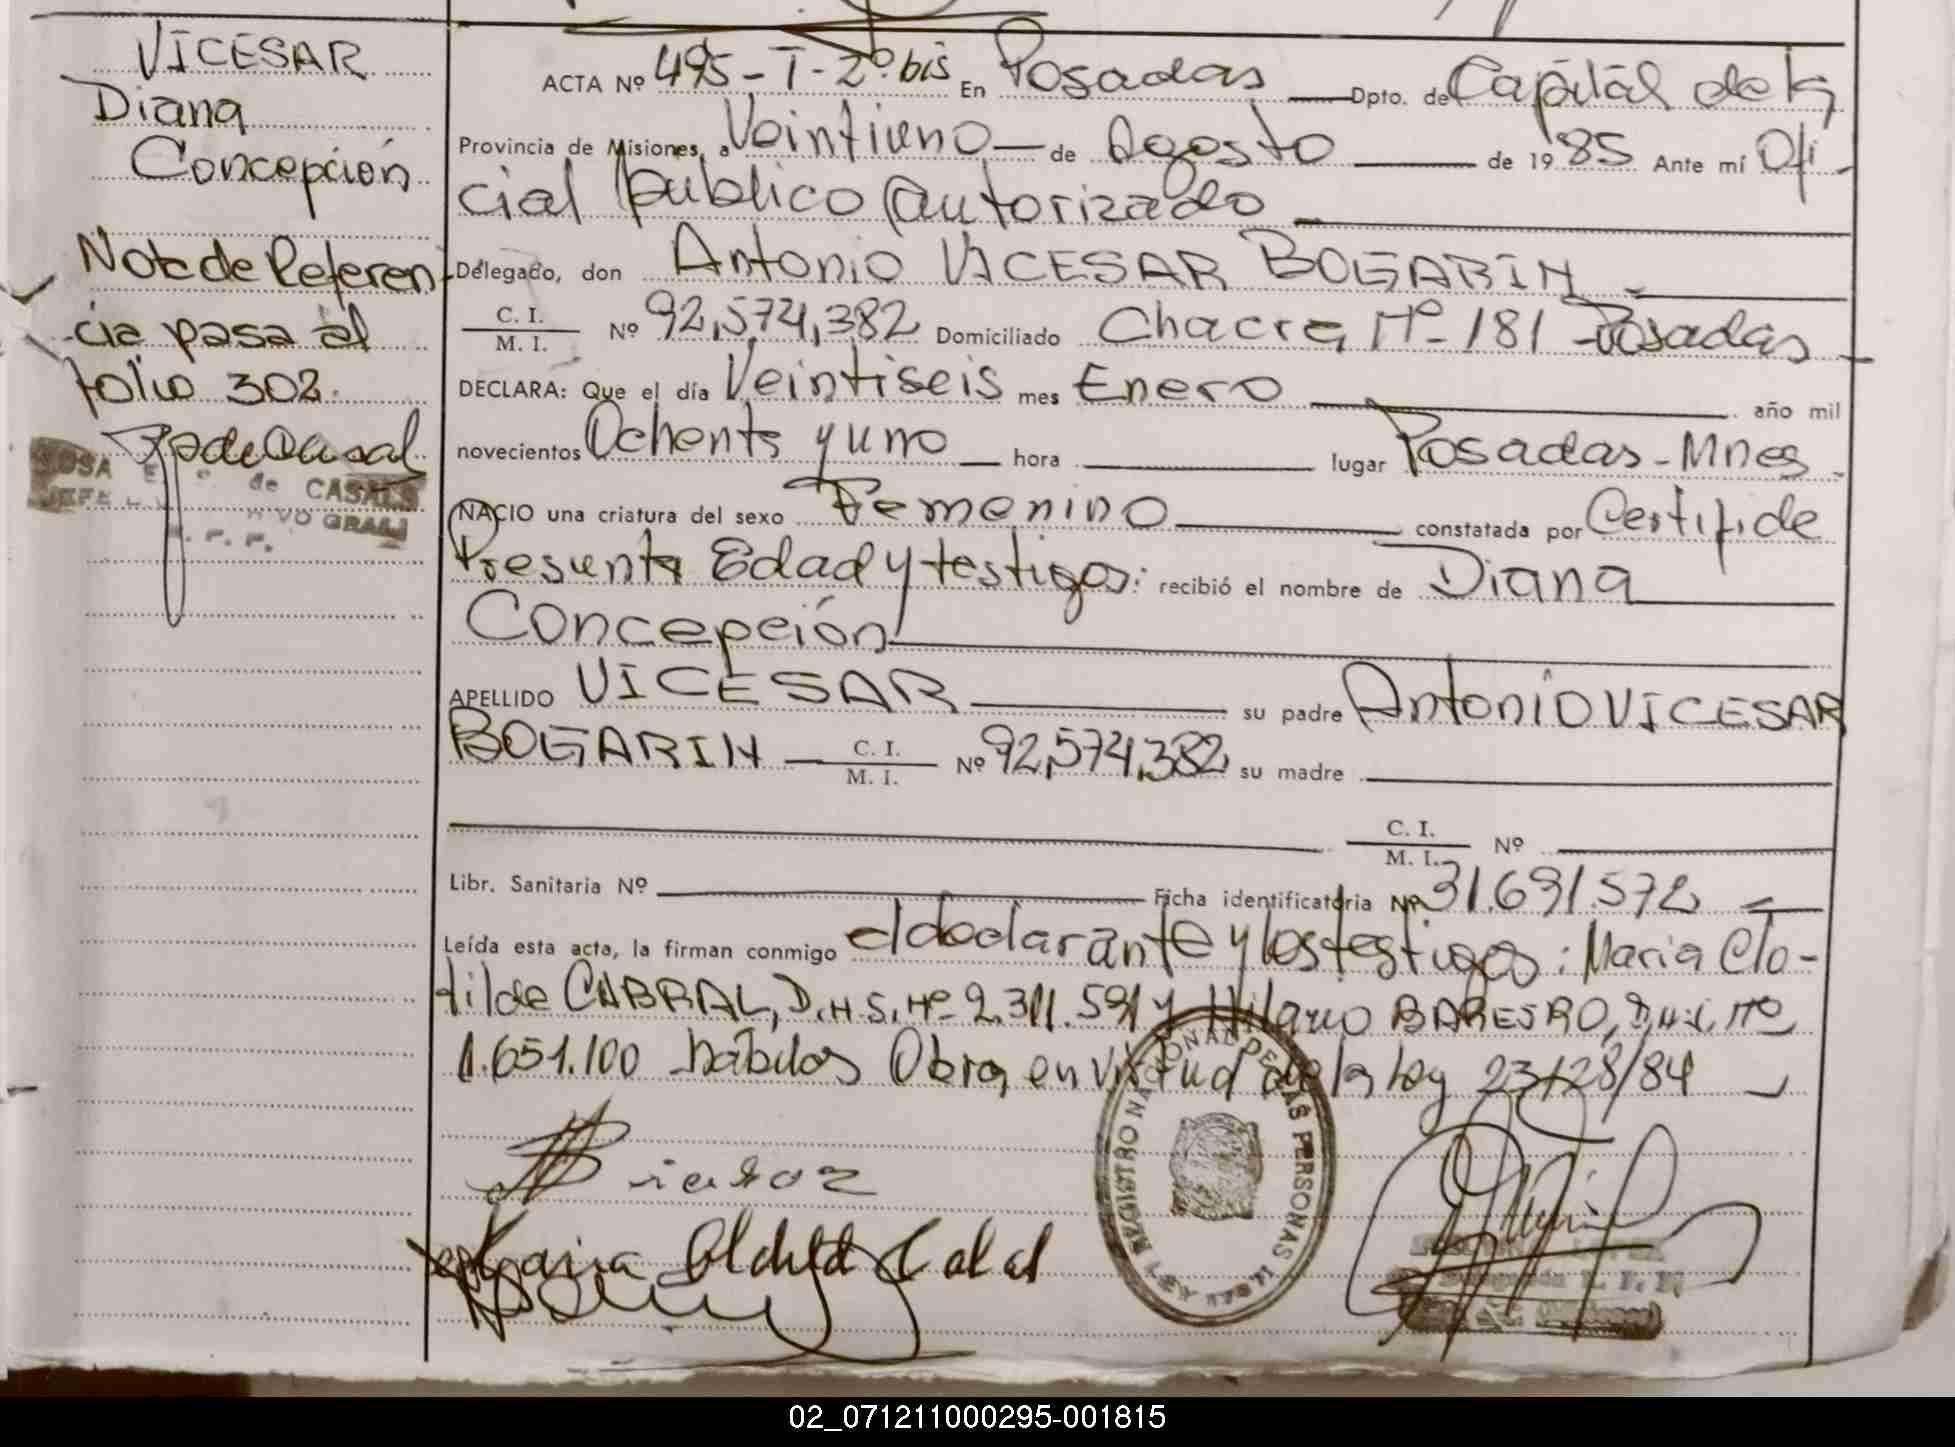 VICESAR
Diana
Concepción
Note de Referen
cia pasa al
folio 302.
de CASALS
ACTA Nº 495-T-2º bis En Posadas Dpto. de Capital de la
Provincia de Misiones, a Veintiuno de Agosto de 1985 Ante mí Ofi-
cial publico autorizado
Delegado, don Antonio VICESAR BOGARIN
C. I.
M. I.
Nº 92,574,382 Domiciliado Chacra Nº 181 - Posadas -
DECLARA: Que el día Veintiseis mes Enero año mil
novecientos Ochenta y uno hora lugar Posadas - Mnes
NACIO una criatura del sexo Femenino constatada por Certif. de
Presunta Edad y testigos: recibió el nombre de Diana
Concepción
APELLIDO VICESAR su padre Antonio VICESAR
BOGARIN C. I.
M. I.
Nº 92,574,382 su madre
C. I.
M. I.
Nº
Libr. Sanitaria Nº Ficha identificatoria Nº 31.691.572
Leída esta acta, la firman conmigo el declarante y los testigos: Maria Clo-
tilde CABRAL, Nº 2.311.591 y Hilario
1.651.100 habiles Obra, en virtud de la ley 23128/84
REGISTRO NACIONAL DE LAS PERSONAS
02_071211000295-001815